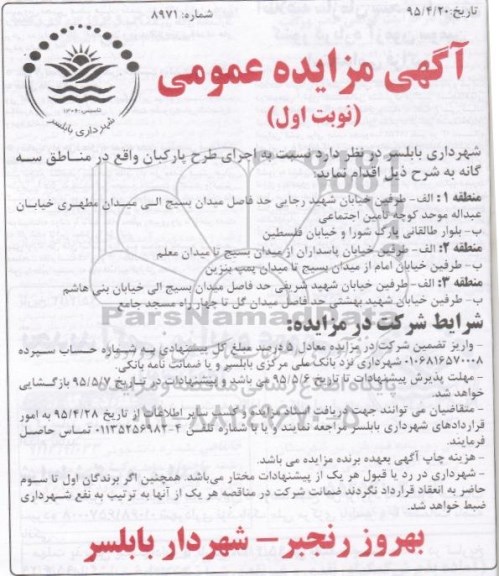 تاریخ: ۹۵/۴/۲۰
شماره: ۸۹۷۱
تاسیس: ۱۳۰۶
شهرداری بابلسر
آگهی مزایده عمومی
(نوبت اول)
شهرداری بابلسر در نظر دارد نسبت به اجرای طرح پارکبان واقع در مناطق سه
گانه به شرح ذیل اقدام نماید:
منطقه ۱: الف- طرفین خیابان شهید رجایی حد فاصل میدان بسیج الی میدان مطهری خیابان
عبداله موحد کوچه تأمین اجتماعی
ب- بلوار طالقانی پارک شورا و خیابان فلسطین
منطقه ۲: الف- طرفین خیابان پاسداران از میدان بسیج تا میدان معلم
ب- طرفین خیابان امام از میدان بسیج تا میدان پمپ بنزین
منطقه ۳: الف- طرفین خیابان شهید شریفی حد فاصل میدان بسیج الی خیابان بنی هاشم
ب- طرفین خیابان شهید بهشتی حد فاصل میدان گل تا چهار راه مسجد جامع
ParsNamadData
شرایط شرکت در مزایده:
- واریز تضمین شرکت در مزایده معادل ۵ درصد مبلغ کل پیشنهادی به شماره حساب سپرده
۰۱۰۶۸۱۶۵۷۰۰۸ شهرداری نزد بانک ملی مرکزی بابلسر و یا ضمانت نامه بانکی.
- مهلت پذیرش پیشنهادات تا تاریخ ۹۵/۵/۶ می باشد و پیشنهادات در تاریخ ۹۵/۵/۷ بازگشایی
خواهد شد.
- متقاضیان می توانند جهت دریافت اسناد مزایده و کسب سایر اطلاعات از تاریخ ۹۵/۴/۲۸ به امور
قراردادهای شهرداری بابلسر مراجعه نمایند و یا با شماره تلفن ۴-۰۱۱۳۵۲۵۶۹۸۲ تماس حاصل
فرمایند.
- هزینه چاپ آگهی بعهده برنده مزایده می باشد.
- شهرداری در رد یا قبول هر یک از پیشنهادات مختار می‌باشد. همچنین اگر برندگان اول تا سوم
حاضر به انعقاد قرارداد نگردند ضمانت شرکت در مناقصه هر یک از آنها به ترتیب به نفع شهرداری
ضبط خواهد شد.
بهروز رنجبر - شهردار بابلسر